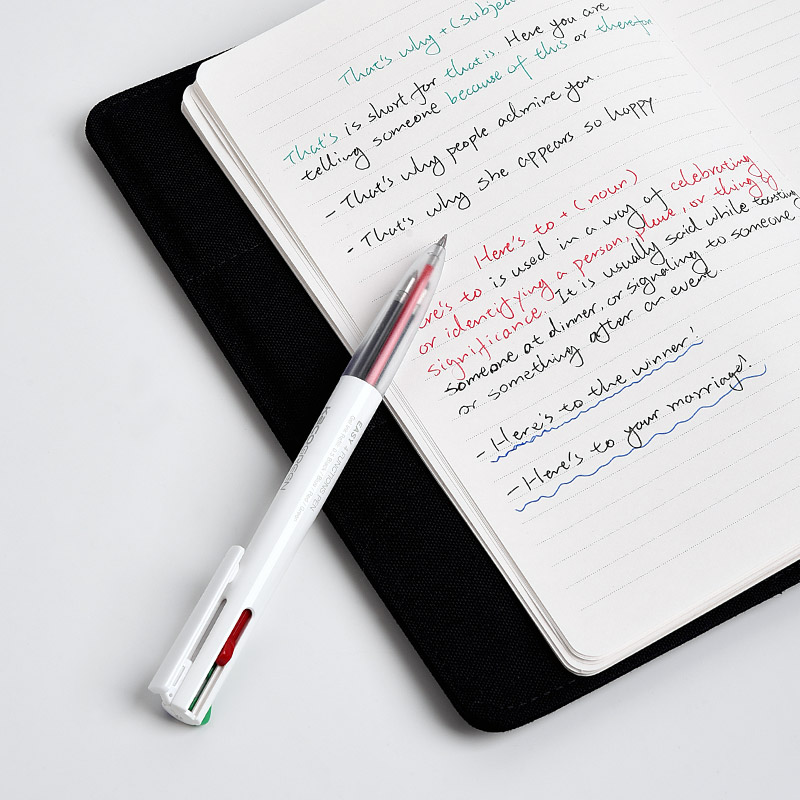 That's why + (subjec
That's is short for that is. Here you are
telling someone because of this or therefor
- That's why people admire you.
- That's why she appears so happy
Here's to + (noun)
re's to is used in a way of celebrating
or identifying a person, place, or thing of
significance. It is usually said while toasting
someone at dinner, or signaling to someone
or something after an event.
- Here's to the winner!
- Here's to your marriage!
KACOGREEN
EASY 4 FUNCTIONS PEN